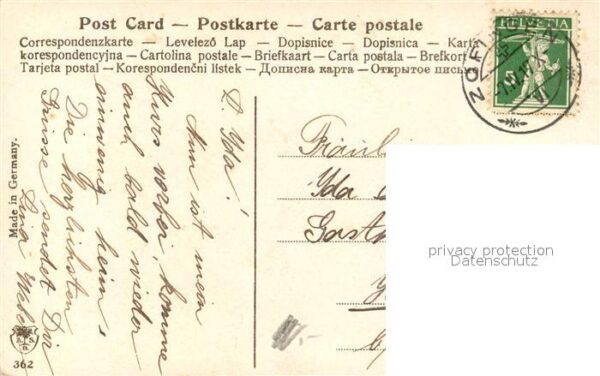 Post Card – Postkarte – Carte postale
Correspondenzkarte – Levelező Lap – Dopisnice – Dopisnica – Karta
korespondencyjna – Cartolina postale – Briefkaart – Carta postala – Brefkort
Tarjeta postal – Korespondenční lístek – Дописна карта – Открытое письмо
HELVETIA
Made in Germany.
L. Ida!
Nun ist mein
Kurs vorbei, komme
auch bald wieder
einwenig heim.
Die herzlichsten
Grüsse sendet Dir
Lina Weber
Fräulein
Ida
Gasth
privacy protection
Datenschutz
362